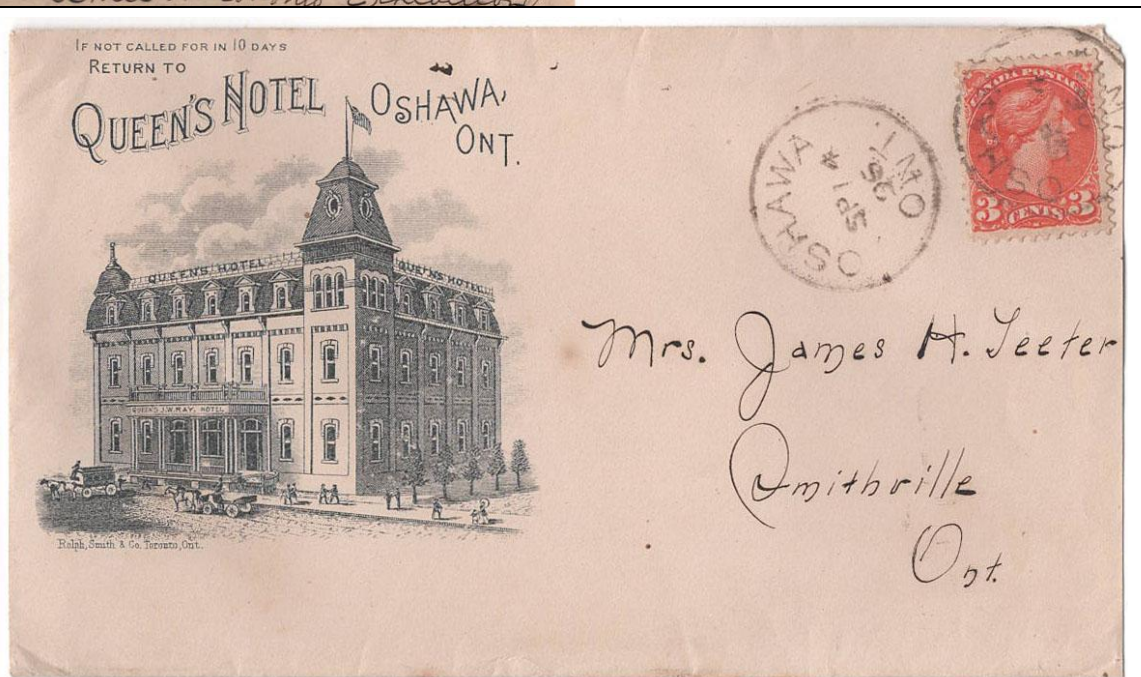 IF NOT CALLED FOR IN 10 DAYS
RETURN TO
QUEEN'S HOTEL OSHAWA,
ONT.
QUEEN'S HOTEL
QUEEN'S HOTEL
QUEEN'S J.W. MAY, HOTEL
Rolph, Smith & Co. Toronto, Ont.
OSHAWA
ONT.
SP 14
CANADA POSTAGE
3 CENTS 3
Mrs. James H. Teeter
Smithville
Ont.